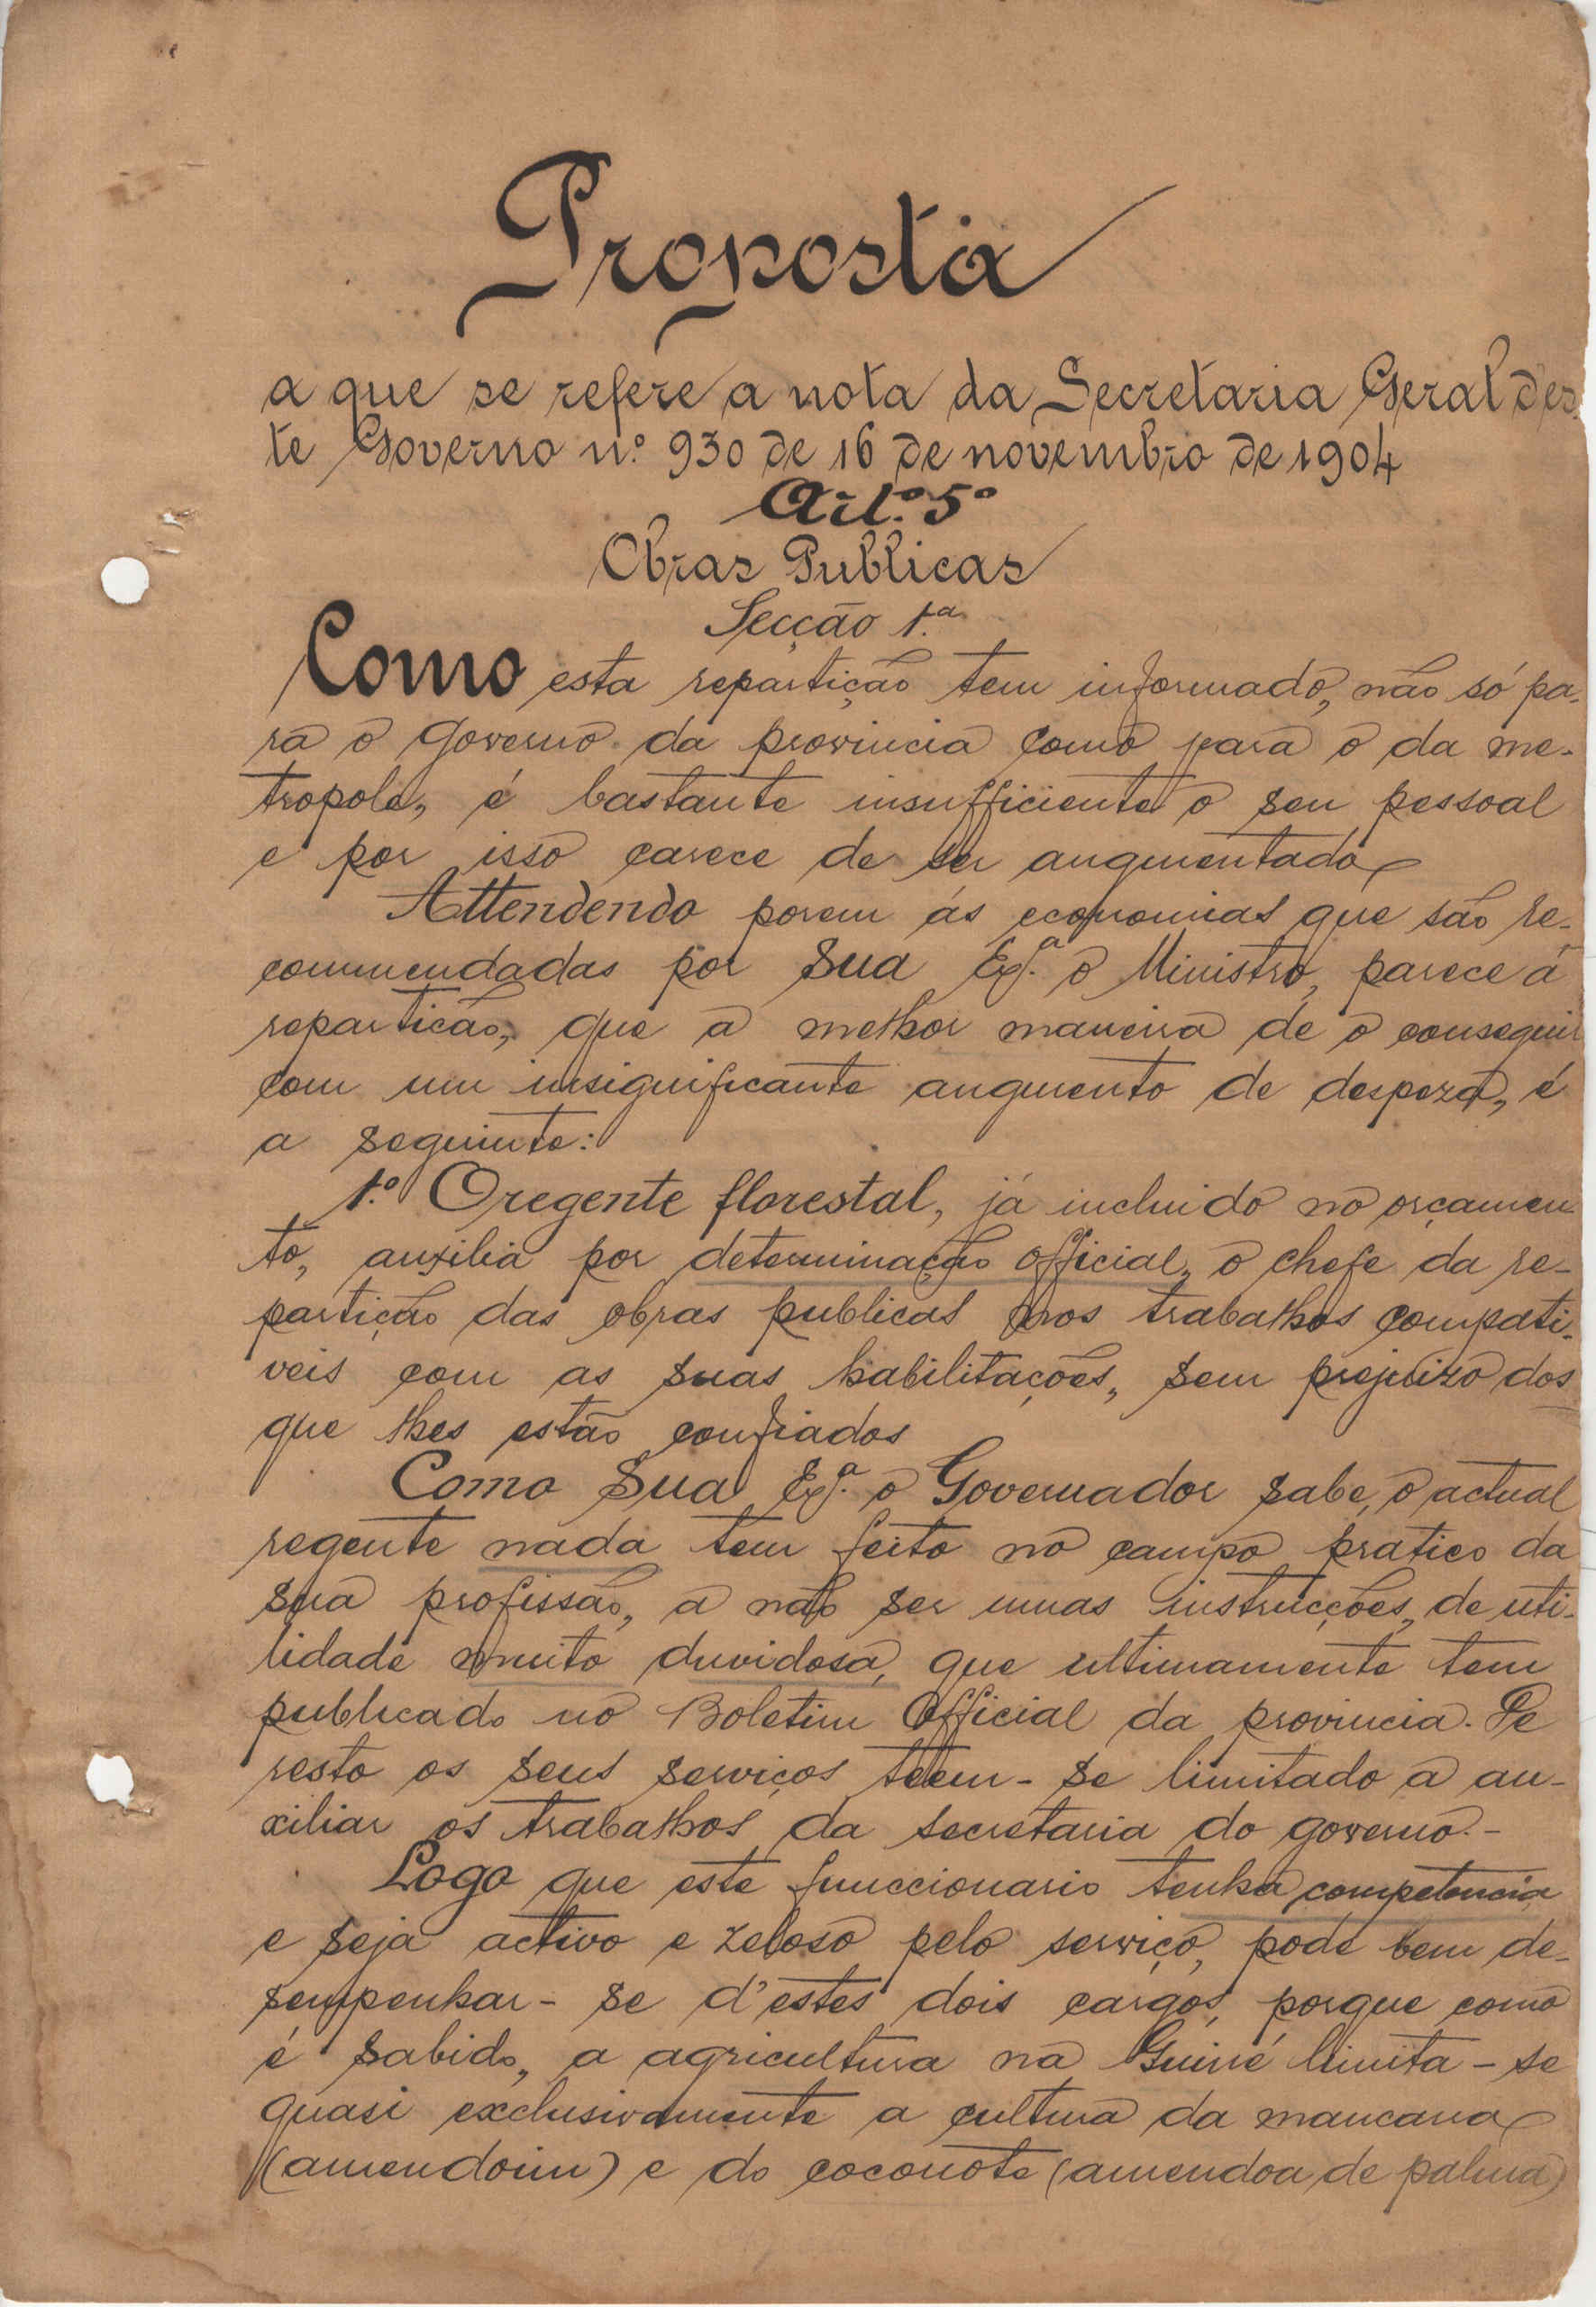 Proposta
a que se refere a nota da Secretaria Geral des
te Governo n.º 930 de 16 de novembro de 1904
Art.º 5º
Obras Publicas
Secção 1.ª
Como esta repartição tem informado, não só pa-
ra o governo da provincia como para o da me-
tropole, é bastante insufficiente o seu pessoal
e por isso carece de ser augmentado
Attendendo porem ás economias que são re-
commendadas por Sua Ex.ª o Ministro, parece á
repartição, que a melhor maneira de o conseguir
com um insignificante augmento de despeza, é
a seguinte:
1.º O regente florestal, já incluido no orçamen
to, auxilia por determinação official, o chefe da re-
partição das obras publicas nos trabalhos compati-
veis com as suas habilitações, sem prejuizo dos
que lhes estão confiados
Como Sua Ex.ª o Governador sabe, o actual
regente nada tem feito no campo pratico da
sua profissão, a não ser umas instrucções, de uti-
lidade muito duvidosa, que ultimamente tem
publicado no Boletim Official da provincia. De
resto os seus serviços teem-se limitado a au-
xiliar os trabalhos da secretaria do governo.-
Logo que este funccionario tenha competencia
e seja activo e zeloso pelo serviço, pode bem de-
sempenhar-se d'estes dois cargos, porque como
é sabido, a agricultura na Guiné limita-se
quasi exclusivamente a cultura da mancarra
(amendoim) e do coconote (amendoa de palma)